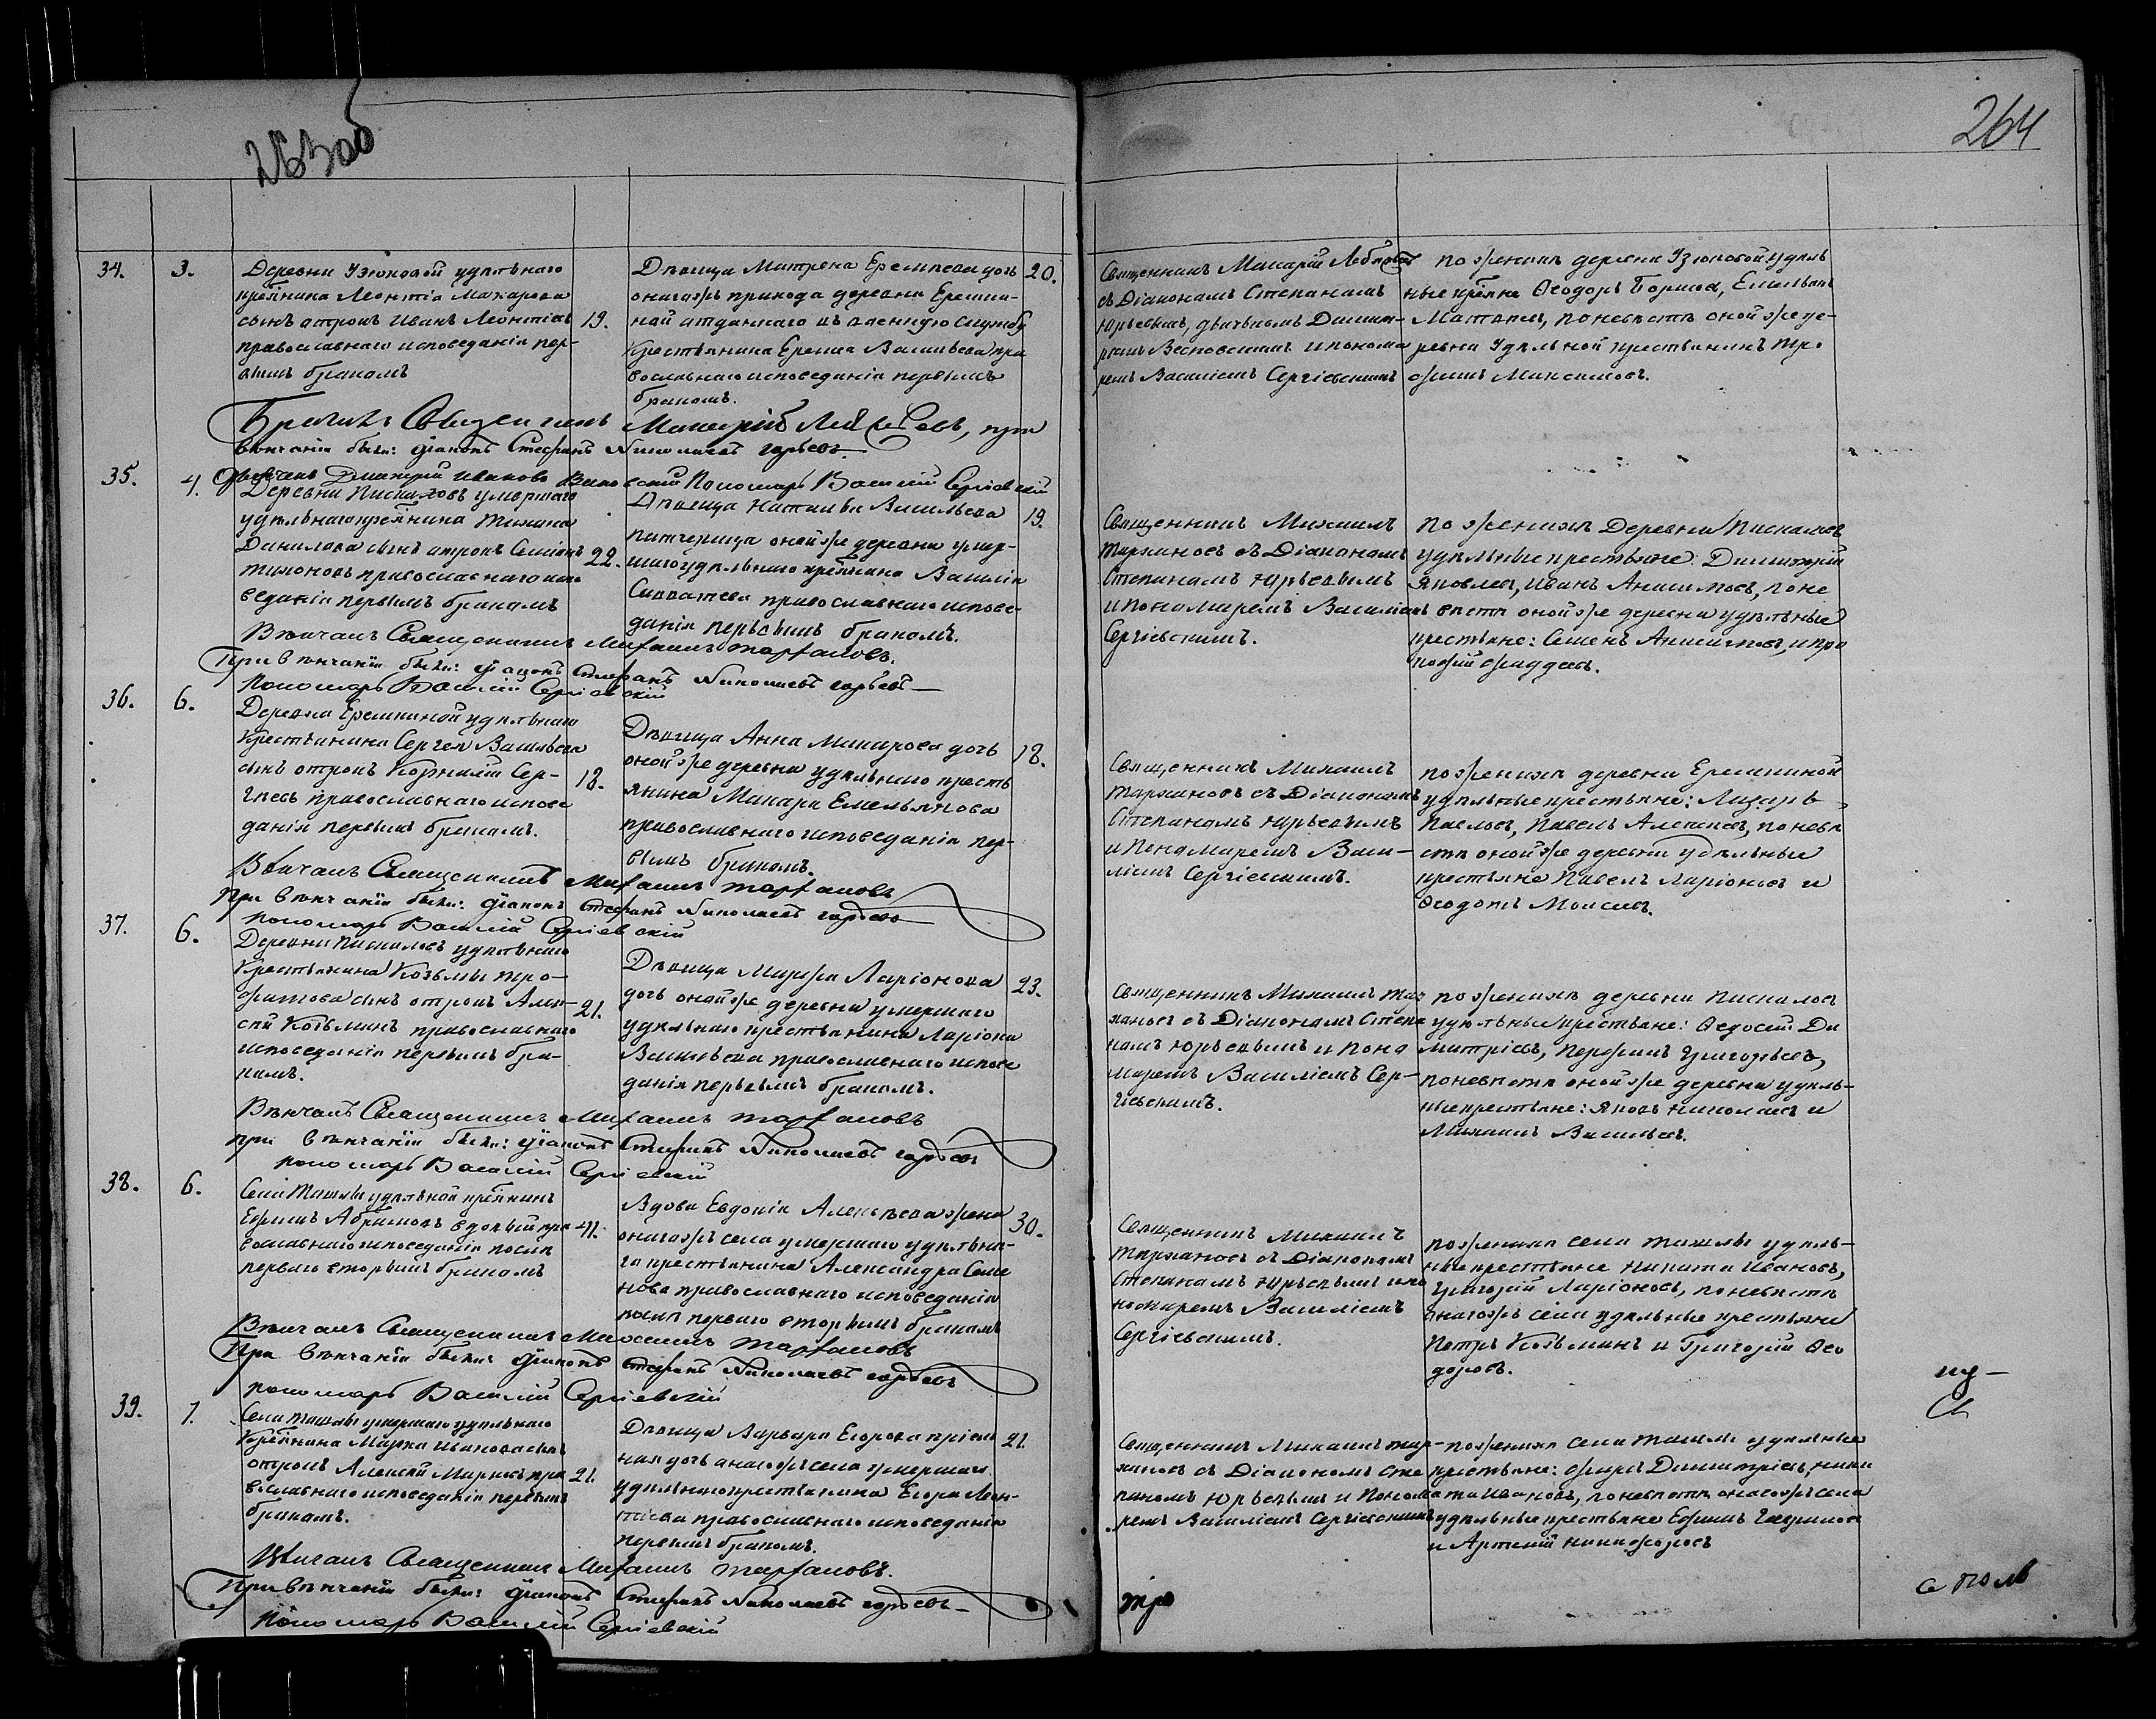 263об
264
34.
3.
Деревни Узюковой удѣльнаго
крестьянина Леонтія Макарова
сынъ отрокъ Иванъ Леонтіевъ
православнаго исповеданія пер-
вымъ бракомъ
19.
Дѣвица Матрена Еремѣева дочь
онагожъ прихода деревни Еремки-
ной отданнаго въ военную службу
Крестьянина Еремея Васильева пра
вославнаго исповеданія первымъ
бракомъ.
20.
Священникъ Макарій
съ Діакономъ Степаномъ
Юрьевымъ, дьячкомъ Димит-
ріемъ и понома
ремъ Василіемъ Сергіевскимъ
по женихѣ деревни Узюковой удѣль
ные кр҃яне Ѳеодоръ Емельянъ
по невѣстѣ оной же де-
ревни Удѣльной крестьянинъ Тро
фимъ Максимовъ.
Бракъ Священникъ Макарій при
вѣнчаніи были: діаконъ Стефанъ Николаевъ Юрьевъ
Дьячекъ Дмитрій Ивановъ Пономарь Василій Сергіевскій
35.
4.
Деревни Пискаловъ умершаго
удѣльнаго кр҃янина Тихона
Данилова сынъ отрокъ Семіонъ
Тихоновъ православнаго испо
веданія первымъ бракомъ
22.
Дѣвица Наталья Васильева
оной же деревни умер-
шаго удѣльнаго кр҃янина Василія
Савватеева православнаго испове-
данія первымъ бракомъ.
19.
Священникъ Михаилъ
Тархановъ съ Діакономъ
Степаномъ Юрьевымъ
и пономаремъ Василіемъ
Сергіевскимъ.
по женихѣ Деревни Пискаловъ
удѣльные крестьяне: Димитрій
Яковлевъ, Иванъ Анисимовъ, по не
вѣстѣ оной же деревни удѣльные
крестьяне: Семенъ Анисимовъ, и Про
кофій Фаддеевъ.
Вѣнчалъ Священникъ Михаилъ Тархановъ.
При вѣнчаніи были: діаконъ Стефанъ Николаевъ Юрьевъ
пономарь Василій Сергіевскій
36.
6.
Деревни Еремкиной удѣльнаго
Крестьянина Сергея Васильева
сынъ отрокъ Корнилій Сер-
гѣевъ православнаго испове
данія первымъ бракомъ.
18.
Дѣвица Анна Макарова дочь
оной же деревни удѣльнаго кресть
янина Макара Емельянова
православнаго исповеданія пер-
вымъ бракомъ.
18.
Священникъ Михаилъ
Тархановъ съ Діакономъ
Степаномъ Юрьевымъ
и Пономаремъ Васи-
ліемъ Сергіевскимъ.
по женихѣ деревни Еремкиной
удѣльные крестьяне: Лазарь
Павловъ, Павелъ Алексѣевъ, по невѣ
стѣ оной же деревни удѣльные
крестьяне Павелъ Ларіоновъ и
Ѳеодотъ Моисеевъ.
Вѣнчалъ Священникъ Михаилъ Тархановъ
При вѣнчаніи были: діаконъ Стефанъ Николаевъ Юрьевъ
пономарь Василій Сергіевскій
37.
6.
Деревни Пискаловъ удѣльнаго
Крестьянина Козьмы Тро-
фимова сынъ отрокъ Алек-
сѣй Козьминъ православнаго
исповеданія первымъ бра-
комъ.
21.
Дѣвица Марфа Ларіонова
дочь оной же деревни умершаго
удѣльнаго крестьянина Ларіона
Васильева православнаго испове
данія первымъ бракомъ.
23.
Священникъ Михаилъ Тар
хановъ съ Діакономъ Степа
номъ Юрьевымъ и Поно
маремъ Василіемъ Сер-
гіевскимъ.
по женихѣ деревни Пискаловъ
удѣльные крестьяне: Ѳедосій Ди
митріевъ, Перфилъ Григорьевъ,
по невѣстѣ оной же деревни удѣль-
ные крестьяне: Яковъ Николаевъ и
Михаилъ Васильевъ.
Вѣнчалъ Священникъ Михаилъ Тархановъ
при вѣнчаніи были: діаконъ Стефанъ Николаевъ Юрьевъ
пономарь Василій Сергіевскій
38.
6.
Села Ташлы удѣльной кр҃янинъ
Ефимъ Абрамовъ вдовый пра
вославнаго исповеданія послѣ
перваго вторымъ бракомъ
41.
Вдова Евдокія Алексѣева жена
онагожъ села умершаго удѣльна-
го крестьянина Александра Семе
нова православнаго исповеданія
послѣ перваго вторымъ бракомъ
30.
Священникъ Михаилъ
Тархановъ съ Діакономъ
Степаномъ Юрьевымъ и по
номаремъ Василіемъ
Сергіевскимъ.
по женихѣ села Ташлы удѣль-
ные крестьяне Никита Ивановъ,
Григорій Ларіоновъ, по невѣстѣ
онагожъ села удѣльные крестьяне
Петръ Козьминъ и Григорій Ѳео
доровъ.
Вѣнчалъ Священникъ Михаилъ Тархановъ
При вѣнчаніи были: діаконъ Стефанъ Николаевъ Юрьевъ
пономарь Василій Сергіевскій
39.
7.
Села Ташлы умершаго удѣльнаго
Кр҃янина Марка Иванова сынъ
отрокъ Алексѣй Марковъ пра
вославнаго исповеданія первымъ
бракомъ.
21.
Дѣвица Варвара Егорова пріем
ная дочь онагожъ села умершаго
удѣльнаго крестьянина Егора Леон-
тіева православнаго исповеданія
первымъ бракомъ.
21.
Священникъ Михаилъ Тар-
хановъ съ Діакономъ Сте
паномъ Юрьевымъ и Понома
ремъ Василіемъ Сергіевскимъ
по женихѣ села Ташлы удѣльные
крестьяне: Димитріевъ, Ники
та Ивановъ, по невѣстѣ онагожъ села
удѣльные крестьяне Ефимъ Гавриловъ
и Артемій Никифоровъ
Вѣнчалъ Священникъ Михаилъ Тархановъ.
При вѣнчаніи были: діаконъ Стефанъ Николаевъ Юрьевъ
Пономарь Василій Сергіевскій